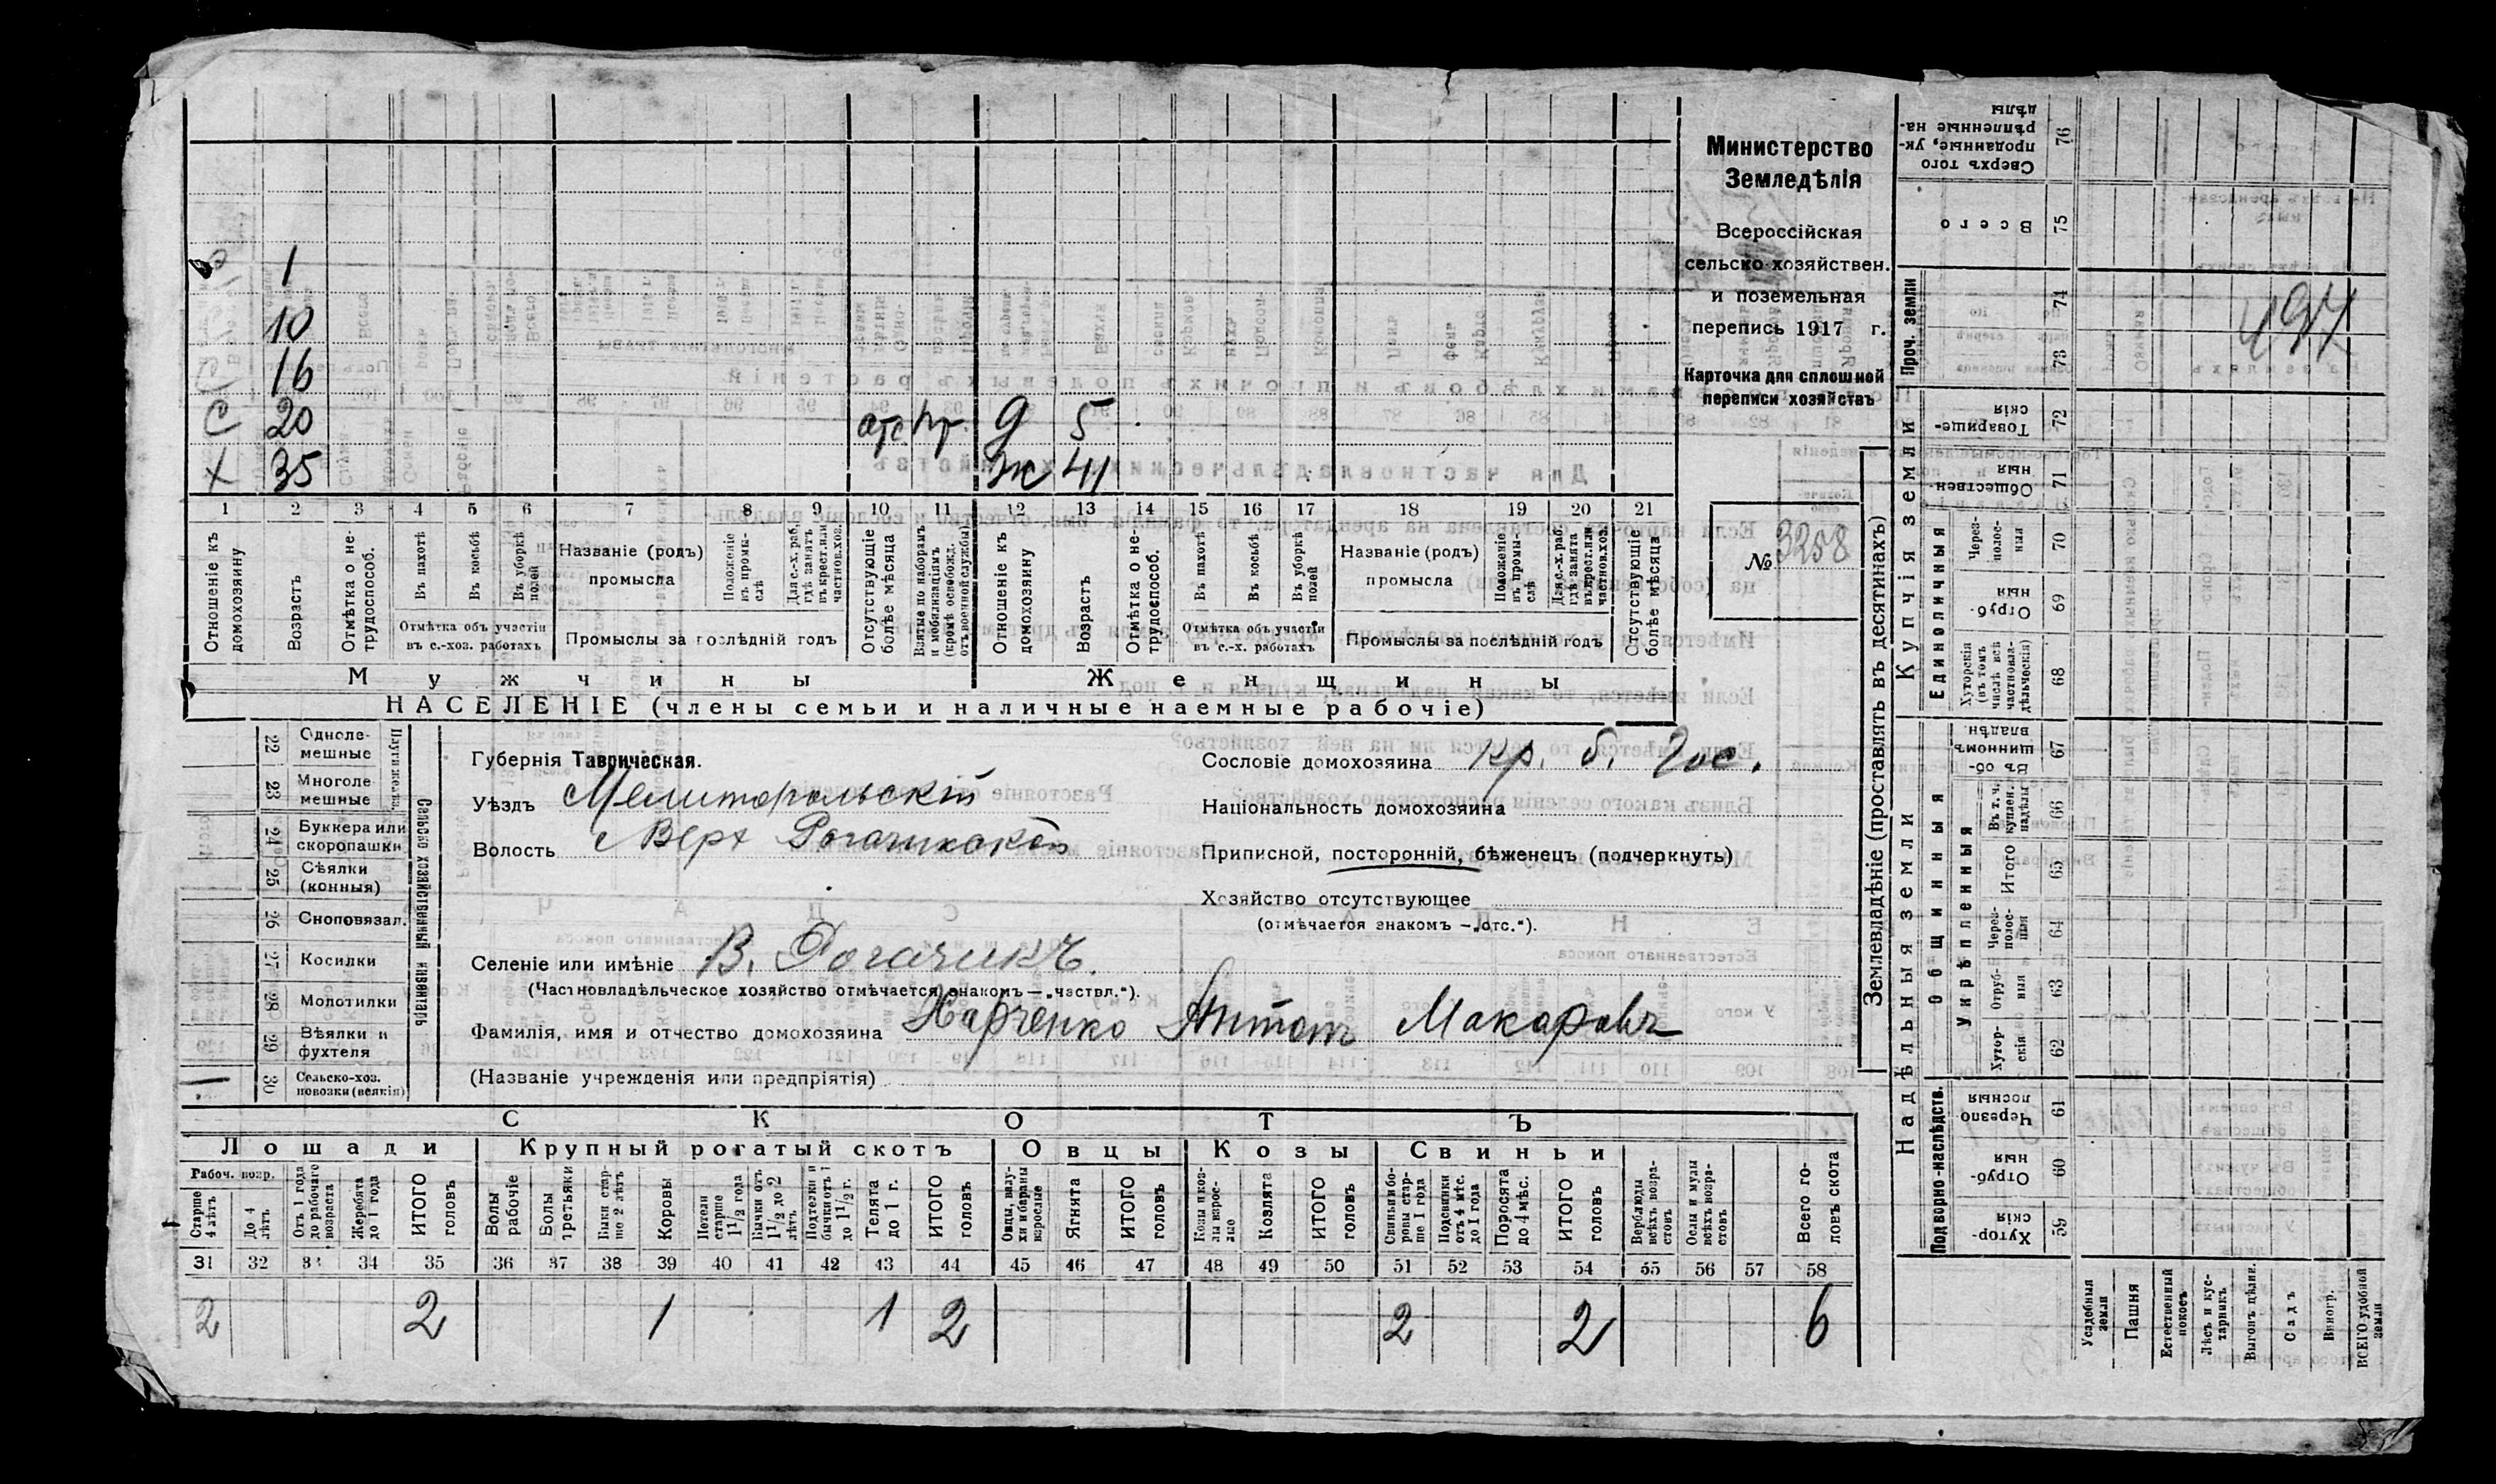 1
10
16
С 20 отс 9 5
Х 35 Ж 41
1 2 3 4 5 6 7 8 9 10 11 12 13 14 15 16 17 18 19 20 21
Отношеніе къ домохозяину
Возрастъ
Отмѣтка о не-трудоспособ.
Въ пахотѣ
Въ косьбѣ
Въ уборкѣ полей
Отмѣтка объ участіи
въ с.-хоз. работахъ
Названіе (родъ)
промысла
Положеніе въ промы-слѣ
Для с.-х. раб. гдѣ занятъ въ крест. или частнов. хоз.
Промыслы за послѣдній годъ
Отсутствующіе болѣе мѣсяца
Взятые по наборамъ и мобилизаціямъ (кромѣ освобожд. отъ военной службы)
Отношеніе къ домохозяину
Возрастъ
Отмѣтка о не-трудоспособ.
Въ пахотѣ
Въ косьбѣ
Въ уборкѣ полей
Отмѣтка объ участіи
въ с.-х. работахъ
Названіе (родъ)
промысла
Положеніе въ промы-слѣ
Для с.-х. раб. гдѣ занята въ крест. или частнов. хоз.
Промыслы за послѣдній годъ
Отсутствующіе болѣе мѣсяца
Мужчины Женщины
НАСЕЛЕНІЕ (члены семьи и наличные наемные рабочіе)
Министерство
Земледѣлія
Всероссійская
сельско-хозяйствен.
и поземельная
перепись 1917 г.
Карточка для сплошной
переписи хозяйствъ
№ 3258
22 Одноле-мешные
23 Многоле-мешные
24 Буккера или скоропашки
25 Сѣялки (конныя)
26 Сноповязал.
27 Косилки
28 Молотилки
29 Вѣялки и фухтеля
30 Сельско-хоз. повозки (всякія)
Сельско хозяйственный инвентарь
Губернія Таврическая.
Уѣздъ Мелитопольскій
Волость Верх Рогачикской
Селеніе или имѣніе В. Рогачикъ.
(Частновладѣльческое хозяйство отмѣчается знакомъ — „частвл.“).
Фамилія, имя и отчество домохозяина Харченко Антонъ Макаровъ
(Названіе учрежденія или предпріятія)
Сословіе домохозяина кр. б. Гос.
Національность домохозяина
Приписной, посторонній, бѣженецъ (подчеркнуть)
Хозяйство отсутствующее
(отмѣчается знакомъ — „отс.“).
СКОТЪ
Лошади Крупный рогатый скотъ Овцы Козы Свиньи
Рабоч. возр.
Старше 4 лѣтъ
До 4 лѣтъ
Отъ 1 года до рабочаго возраста
Жеребята до 1 года
ИТОГО головъ
Волы рабочіе
Волы третьяки
Быки стар-ше 2 лѣтъ
Коровы
Нетели старше 1 1/2 года
Бычки отъ 1 1/2 до 2 лѣтъ
Подтелки и бычки отъ 1 до 1 1/2 г.
Телята до 1 г.
ИТОГО головъ
Овцы, валу-хи и бараны взрослые
Ягнята
ИТОГО головъ
Козы и коз-лы взрос-лые
Козлята
ИТОГО головъ
Свиньи и бо-ровы стар-ше 1 года
Подсвинки отъ 4 мѣс. до 1 года
Поросята до 4 мѣс.
ИТОГО головъ
Верблюды всѣхъ возра-стовъ
Ослы и мулы всѣхъ возра-стовъ
Всего го-ловъ скота
31 32 33 34 35 36 37 38 39 40 41 42 43 44 45 46 47 48 49 50 51 52 53 54 55 56 57 58
2 2 1 1 2 2 2 6
Землевладѣніе (проставлять въ десятинахъ)
Надѣльныя земли Купчія земли Проч. земли
Подворно-наслѣдств.
Общинныя
Укрѣпленныя
Единоличныя
Сверхъ того проданные, ук-рѣпленные на-дѣлы 76
Всего 75
74
73
Товарище-скія 72
Обществен-ныя 71
Через-полос-ныя 70
Отруб-ныя 69
Хуторскія (въ томъ числѣ всѣ частновла-дѣльческія) 68
Въ об-щинномъ владѣн. 67
Въ т. ч. куплен. надѣлы 66
Итого 65
Через-полос-ныя 64
Отруб-ныя 63
Хутор-скія 62
Черезпо-лосныя 61
Отруб-ныя 60
Хутор-скія 59
Усадебныя земли
Пашня
Естественный покосъ
Лѣсъ и кус-тарникъ
Выгонъ цѣлин.
Садъ
Виногр.
ВСЕГО удобной земли